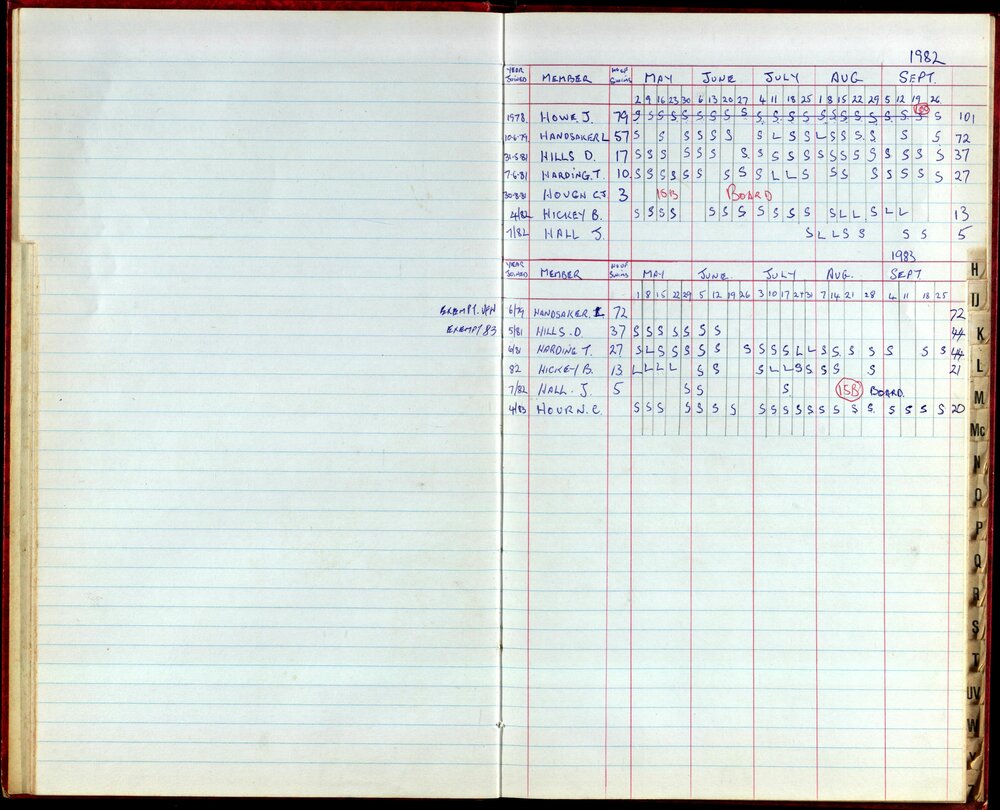 1982
YEAR JOINED MEMBER No of Swims MAY JUNE JULY AUG SEPT.
2 9 16 23 30 6 13 20 27 4 11 18 25 1 8 15 22 29 5 12 19 26
100
1978. HOWE. J. 79 S S S S S S S S S S S S S S S S S S S S S S 101
10-6-79. HANDSAKER L 57 S S S S S S S L S S L S S S S S S 72
31-5-81 HILLS D. 17 S S S S S S S S S S S S S S S S S S S S 37
7-6-81 HARDING. T. 10. S S S S S S S S S L L S S S S S S S S 27
30-8-81 HOUGN C.J 3 15B BOARD
4/82 HICKEY B. S S S S S S S S S S S S L L S L L 13
7/82 HALL J. S L L S S S S 5
1983
YEAR JOINED MEMBER No of Swims MAY JUNE. JULY AUG. SEPT
1 8 15 22 29 5 12 19 26 3 10 17 24 31 7 14 21 28 4 11 18 25
EXEMPT. 6/79 HANDSAKER. L 72 72
EXEMPT 83 5/81 HILLS. D 37 S S S S S S S 44
6/81 HARDING T. 27 S L S S S S S S S S S L L S S S S S S S 44
82 HICKEY B. 13 L L L L S S S L L S S S S S 21
7/82 HALL. J. 5 S S S 15B BOARD.
4/83 HOURN. C. S S S S S S S S S S S S S S S S S S S S 20
H
IJ
K
L
M
Mc
N
O
P
Q
R
S
T
UV
W
Y
Z